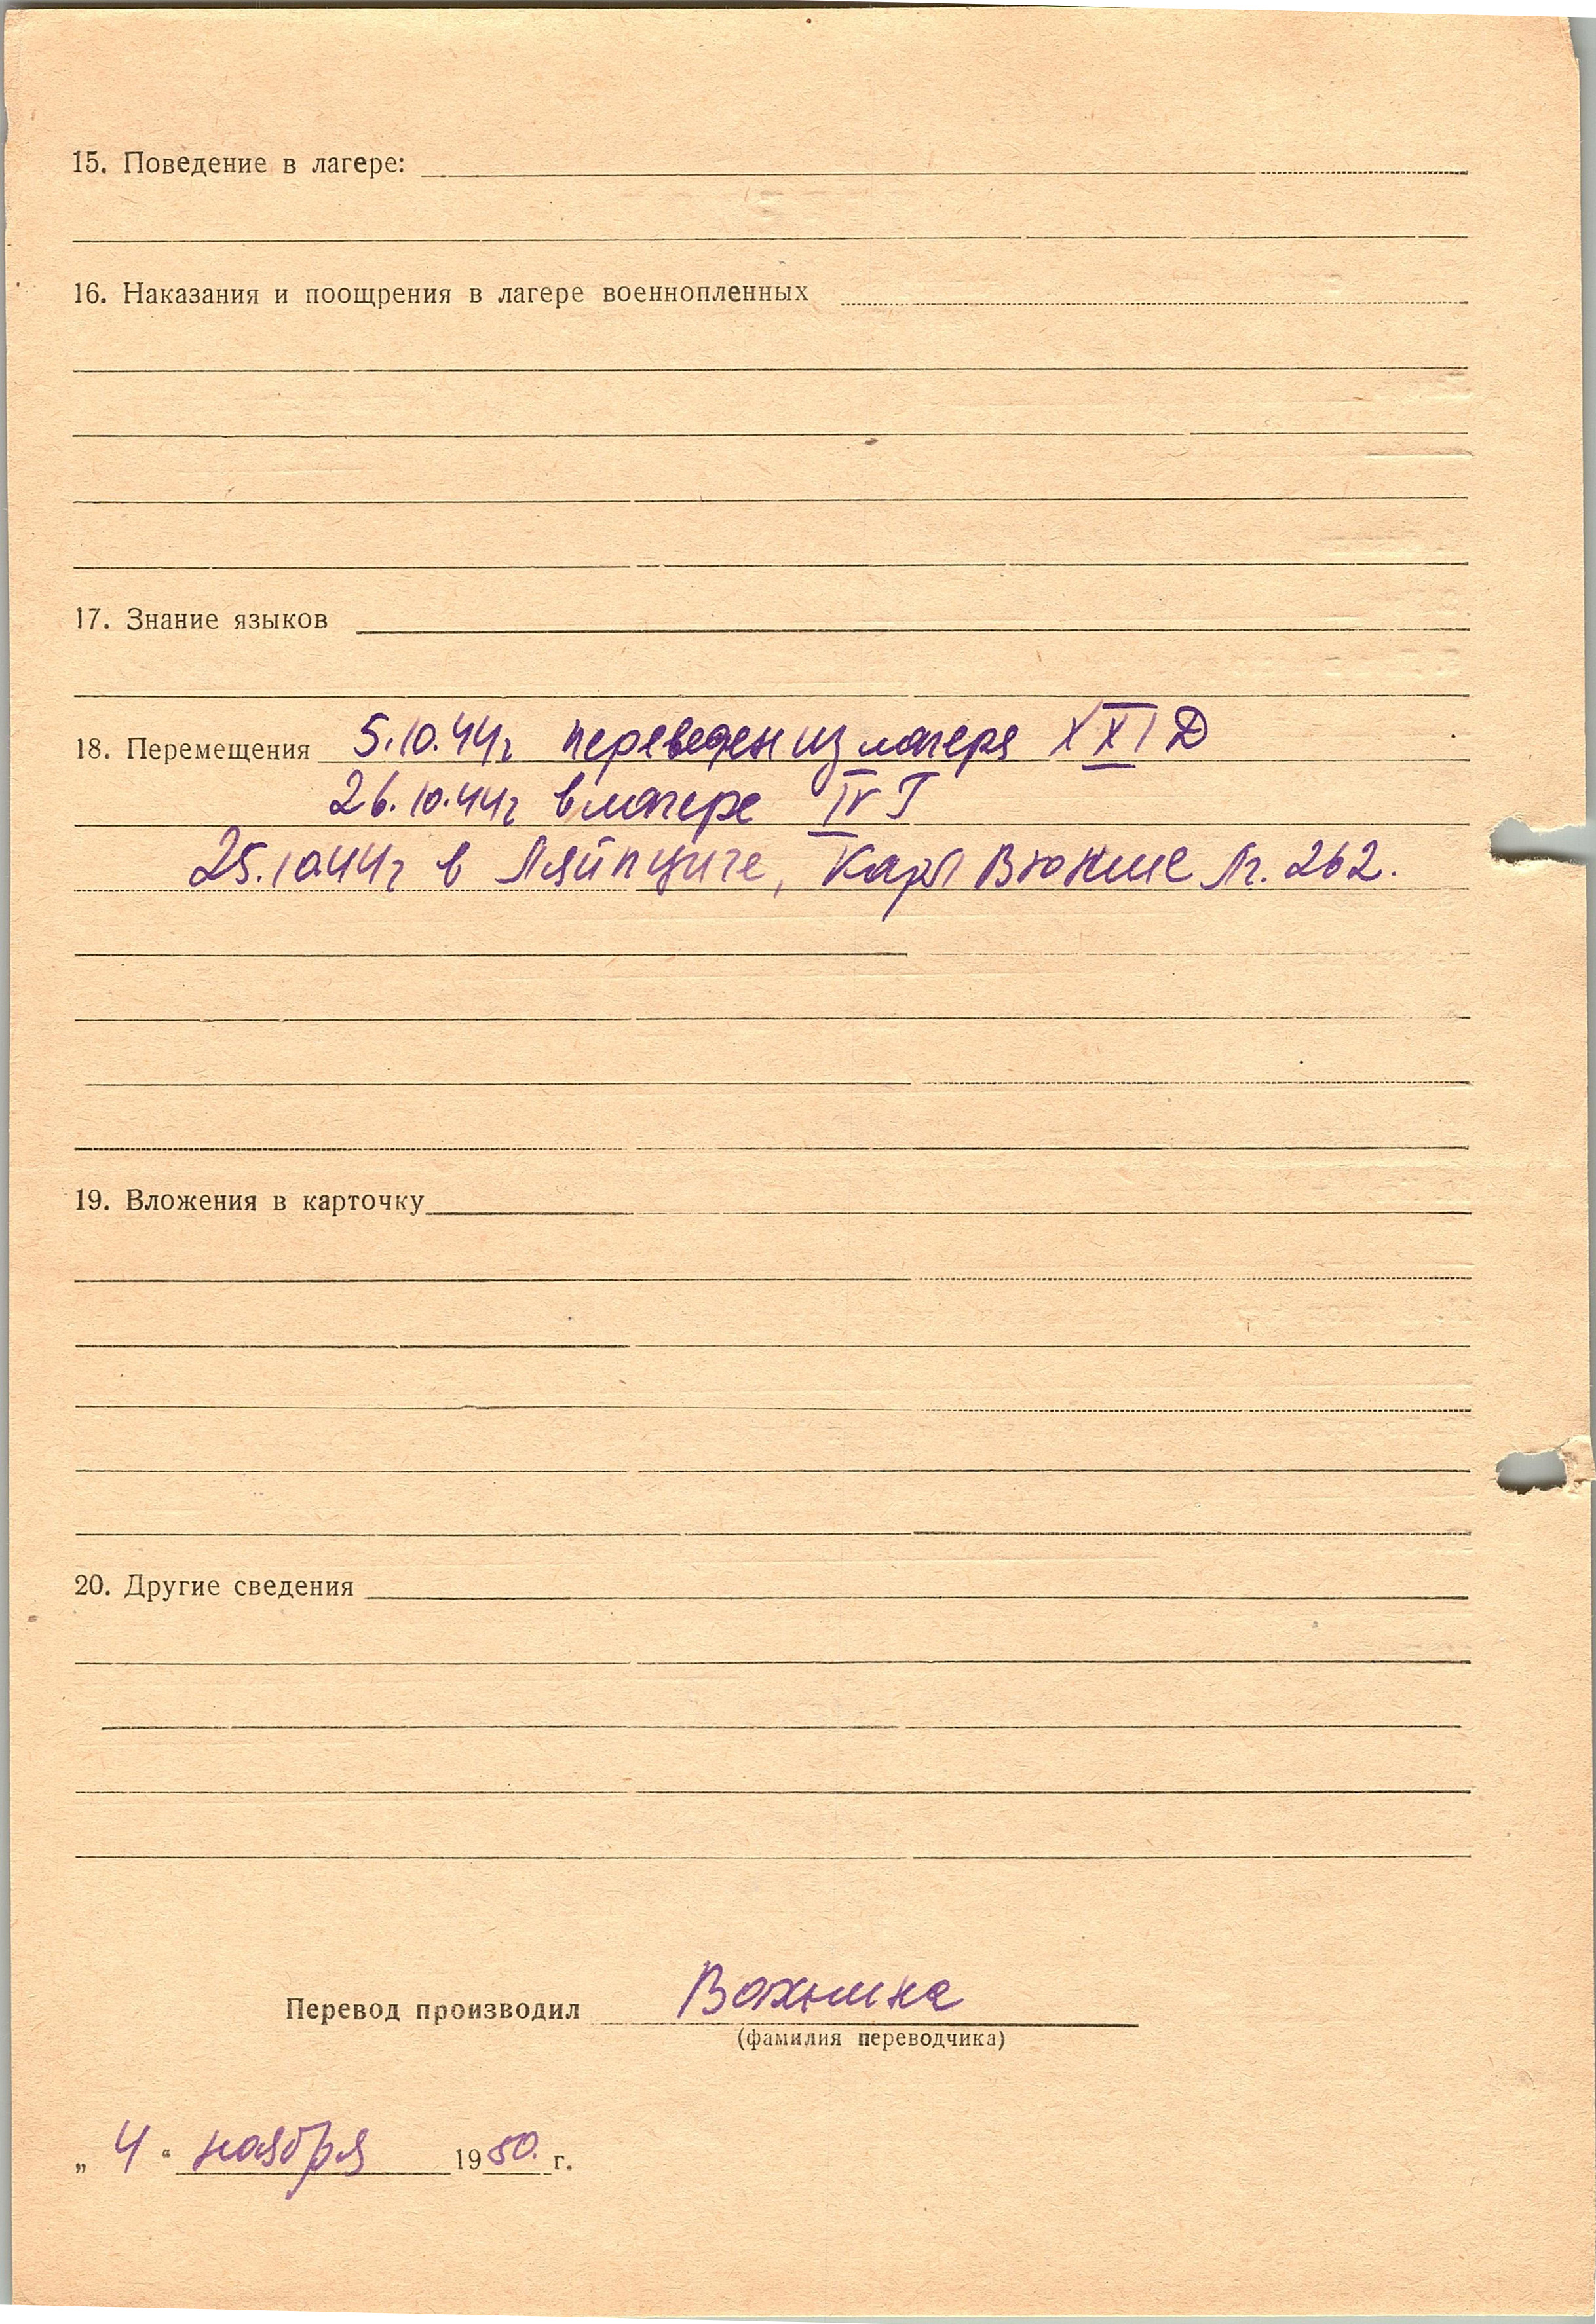 15. Поведение в лагере:
16. Наказания и поощрения в лагере военнопленных
17. Знание языков
18. Перемещения 5.10.44г переведен из лагеря XXI Д
26.10.44г в лагере IV Г
25.10.44г в Ляйпциге, Карл Вюнше Лг. 262.
19. Вложения в карточку
20. Другие сведения
Перевод производил
(фамилия переводчика)
„ 4 “ ноября 1950. г.